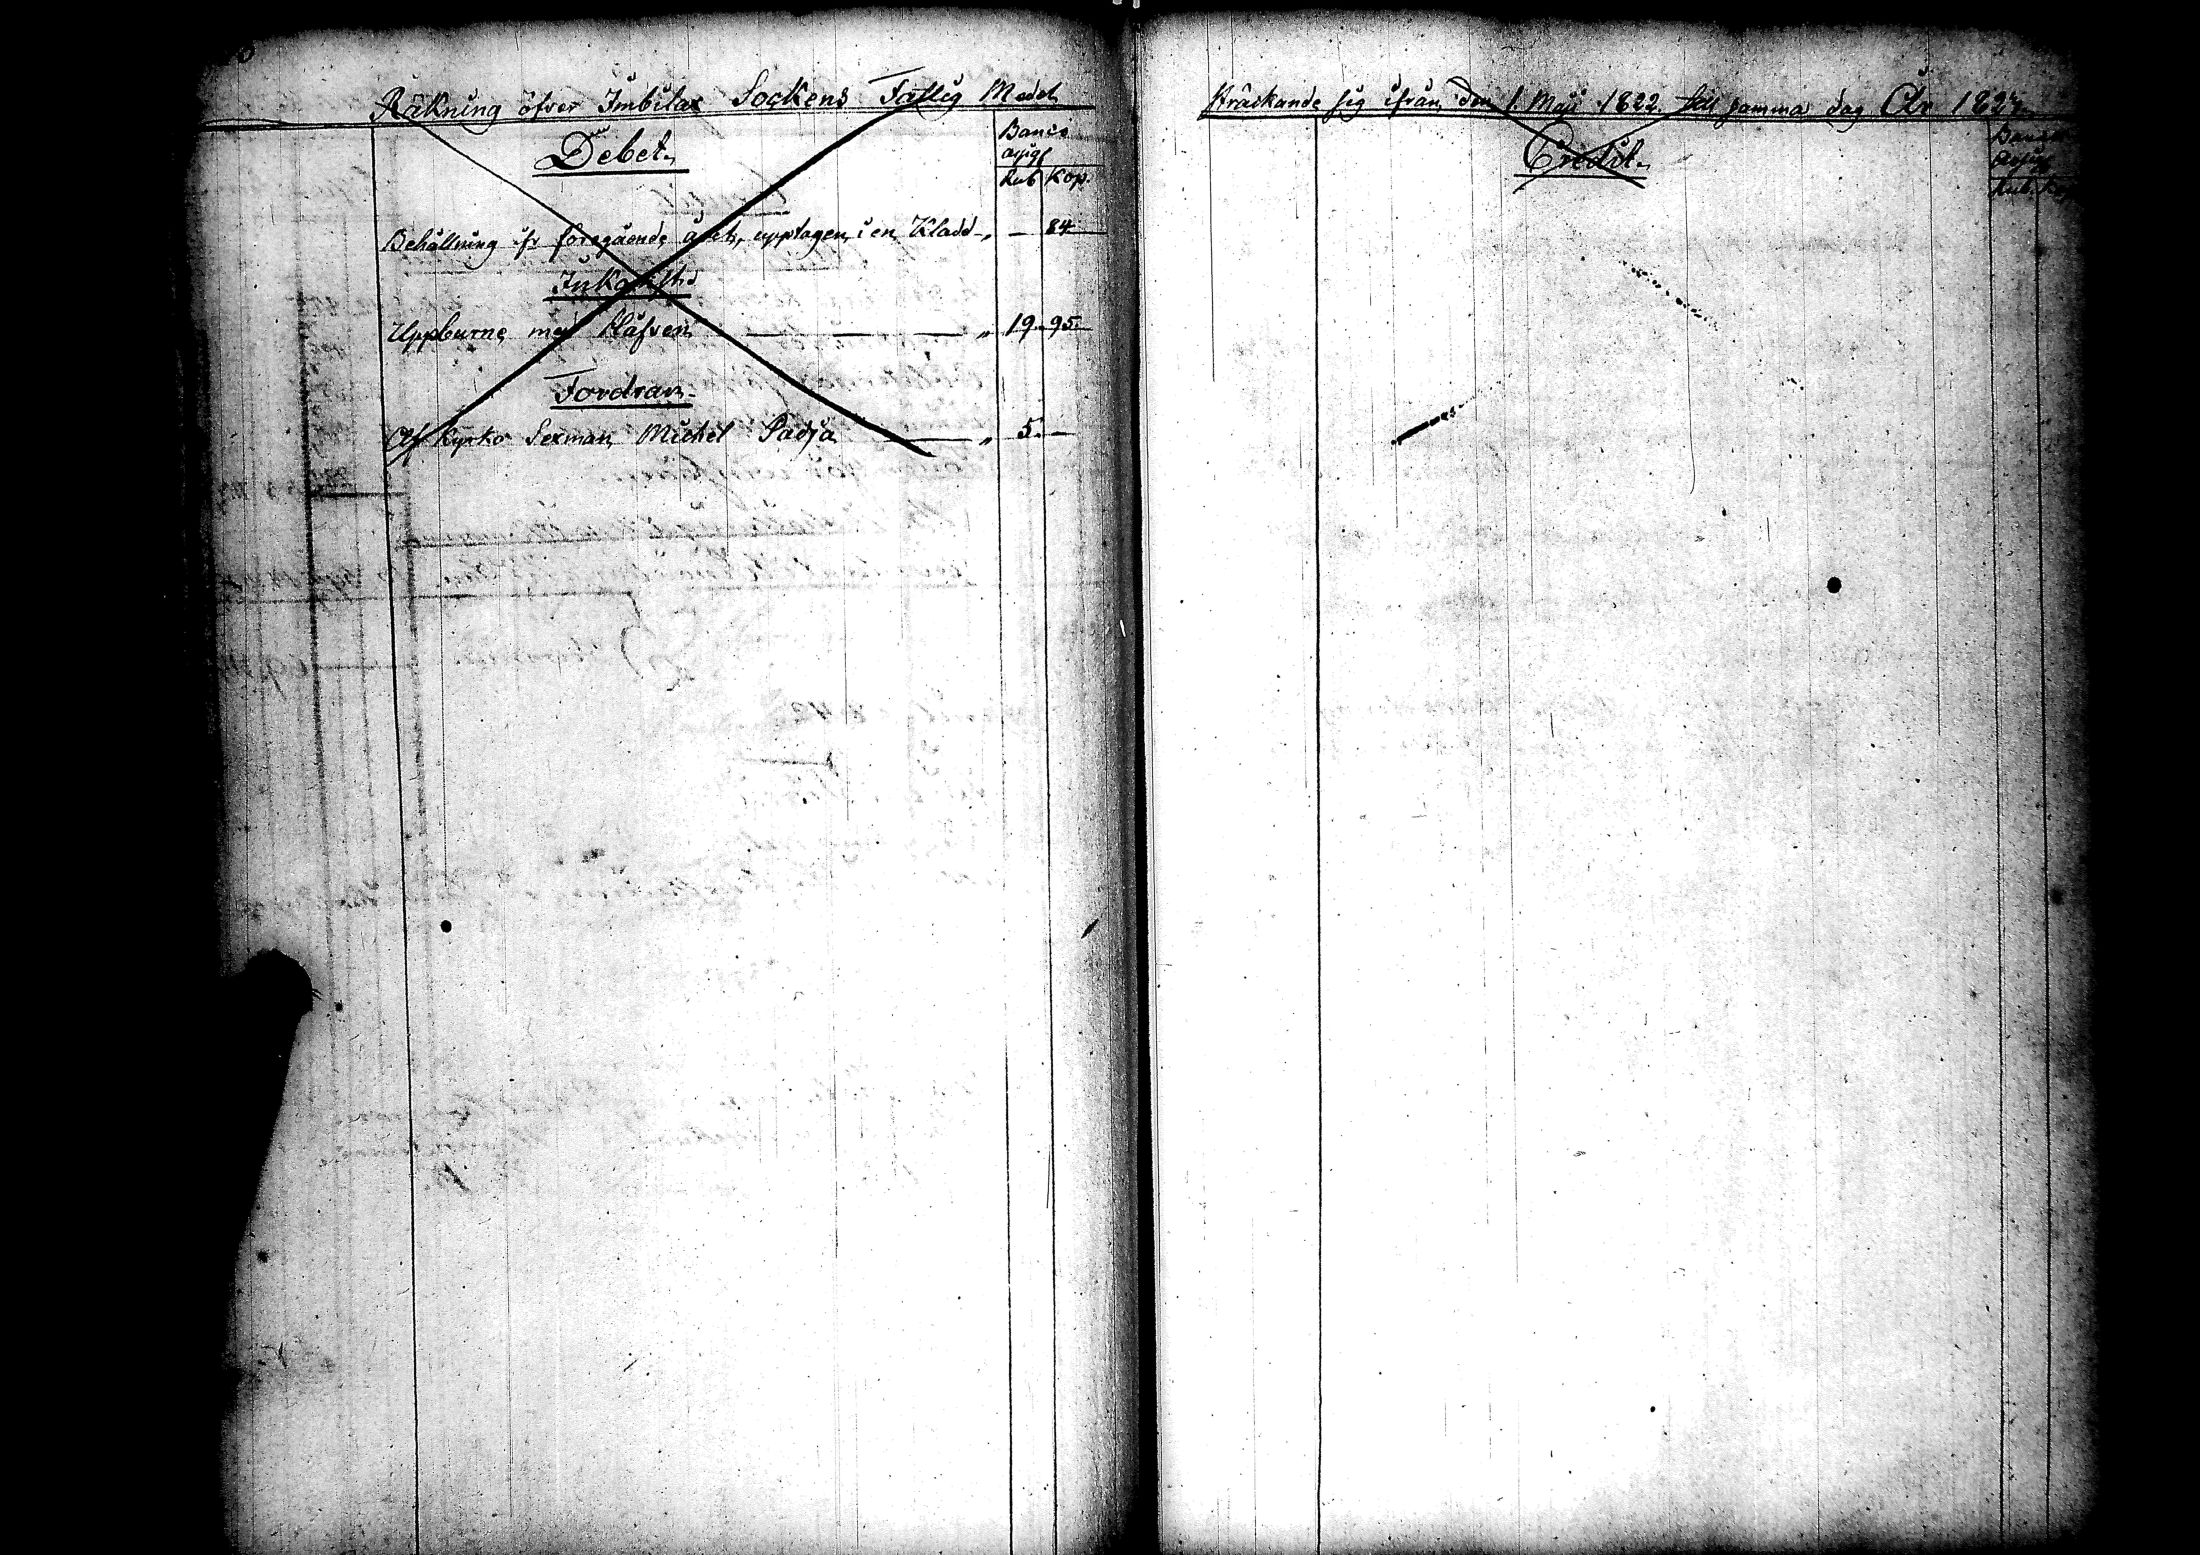 Räkning öfver Imbilax Sockens Fattig Medel
Debet.
Banco
assigr
Rub Kop.
Behållning ifr föregående året, upptagen i en Kladd „ — 84
Inkomst.
Uppburne med Håfven — — — „ 19 95.
Fordran.
Af Kyrko Sexman Michel Padja — „ 5. —
Sträckande sig ifrån den 1. Maji 1822 till samma dag År
Credit.
Banco
Rub. Kop